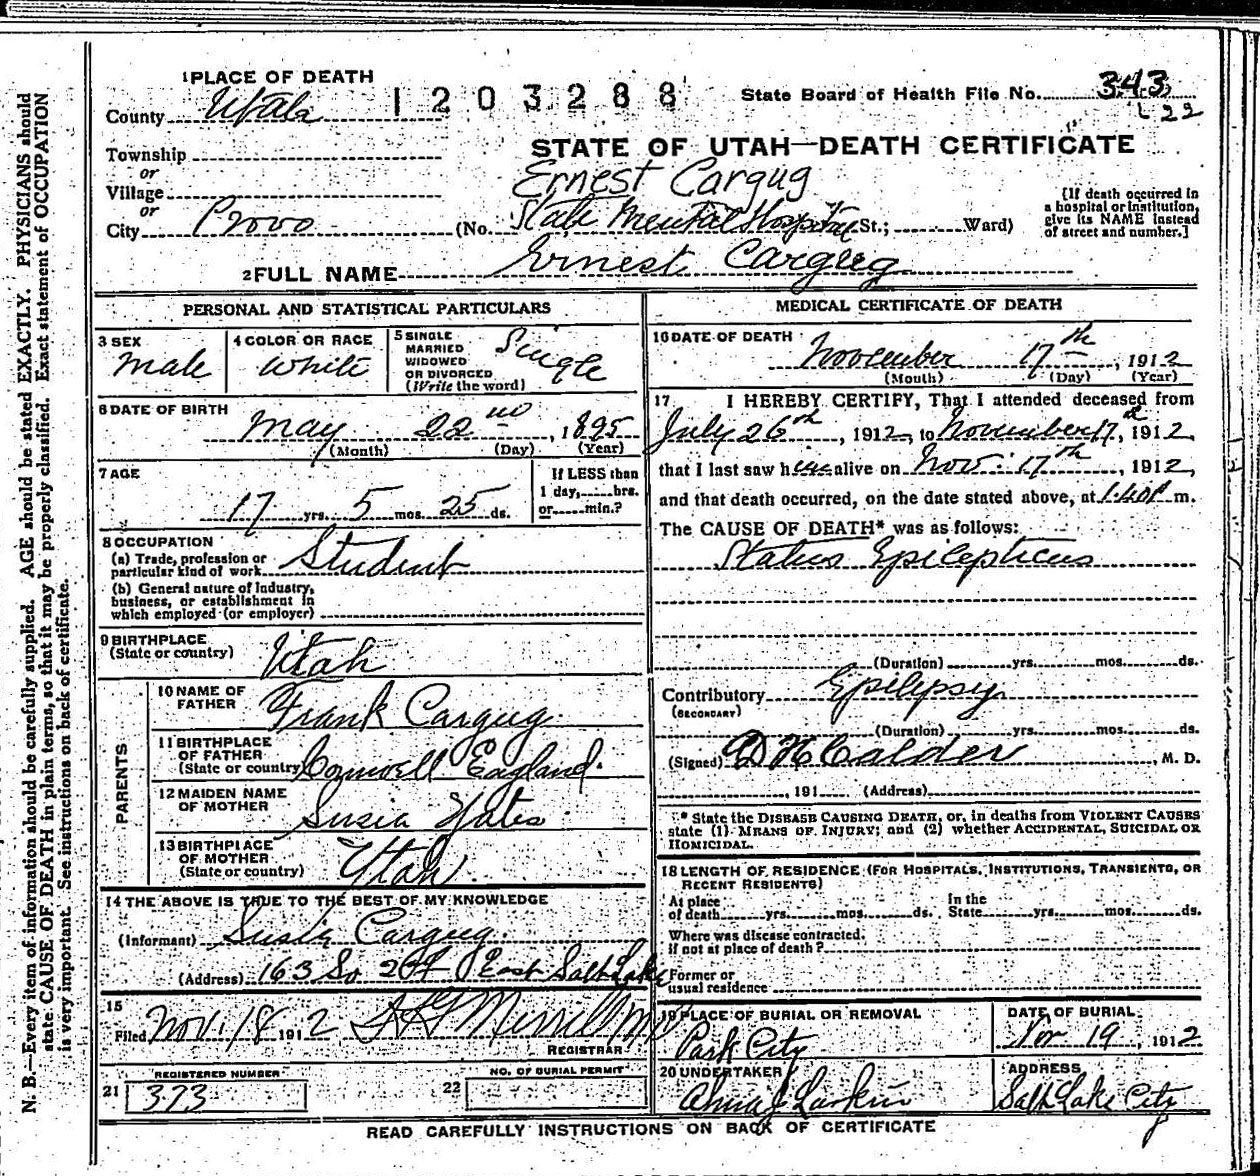 1 PLACE OF DEATH
1203288
State Board of Health File No. 343
L 22
County Utah
STATE OF UTAH—DEATH CERTIFICATE
Township
or
Village
or
City Provo
Ernest Cargug
(No. State Mental Hospital St.; Ward)
[If death occurred in
a hospital or institution,
give its NAME instead
of street and number.]
2 FULL NAME Ernest Cargug
PERSONAL AND STATISTICAL PARTICULARS
3 SEX
Male
4 COLOR OR RACE
White
5 SINGLE
MARRIED
WIDOWED
OR DIVORCED
(Write the word)
Single
6 DATE OF BIRTH
May 22nd, 1895
(Month) (Day) (Year)
7 AGE
17 yrs. 5 mos. 25 ds.
If LESS than
1 day, hrs.
or min.?
8 OCCUPATION
(a) Trade, profession or
particular kind of work Student
(b) General nature of industry,
business, or establishment in
which employed (or employer)
9 BIRTHPLACE
(State or country) Utah
PARENTS
10 NAME OF
FATHER Frank Cargug
11 BIRTHPLACE
OF FATHER
(State or country) Cornwell England.
12 MAIDEN NAME
OF MOTHER Susia Yates
13 BIRTHPLACE
OF MOTHER
(State or country) Utah
14 THE ABOVE IS TRUE TO THE BEST OF MY KNOWLEDGE
(Informant) Susie Cargug.
(Address) 163 So 2nd East Salt Lake
15
Filed Nov. 18 1912 Merrill
REGISTRAR
REGISTERED NUMBER
21 373
NO. OF BURIAL PERMIT
22
MEDICAL CERTIFICATE OF DEATH
16 DATE OF DEATH
November 17th, 1912
(Month) (Day) (Year)
17 I HEREBY CERTIFY, That I attended deceased from
July 26th, 1912, to November 17, 1912,
that I last saw him alive on Nov. 17th, 1912,
and that death occurred, on the date stated above, at 1.40P m.
The CAUSE OF DEATH* was as follows:
Status Epilepticus
(Duration) yrs. mos. ds.
Contributory Epilepsy
(SECONDARY)
(Duration) yrs. mos. ds.
(Signed) D H Calder, M. D.
, 191 (Address)
* State the DISEASE CAUSING DEATH, or, in deaths from VIOLENT CAUSES
state (1) MEANS OF INJURY; and (2) whether ACCIDENTAL, SUICIDAL OR
HOMICIDAL.
18 LENGTH OF RESIDENCE (FOR HOSPITALS, INSTITUTIONS, TRANSIENTS, OR
RECENT RESIDENTS)
At place
of death yrs. mos. ds.
In the
State yrs. mos. ds.
Where was disease contracted.
if not at place of death?
Former or
usual residence
19 PLACE OF BURIAL OR REMOVAL
Park City
DATE OF BURIAL
Nov 19, 1912
20 UNDERTAKER
Larkin
ADDRESS
Salt Lake City
READ CAREFULLY INSTRUCTIONS ON BACK OF CERTIFICATE
N. B.—Every item of information should be carefully supplied. AGE should be stated EXACTLY. PHYSICIANS should
state CAUSE OF DEATH in plain terms, so that it may be properly classified. Exact statement of OCCUPATION
is very important. See instructions on back of certificate.